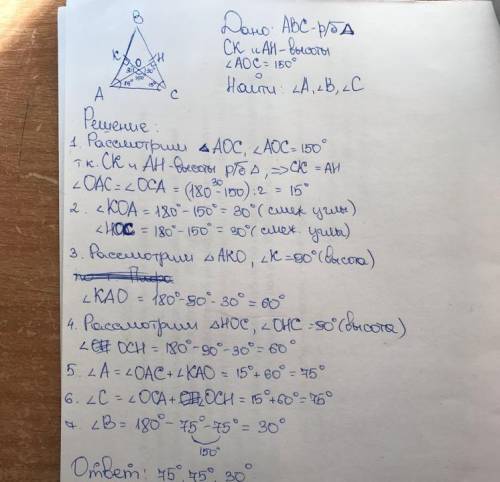 B
K
O
H
30°
30°
150°
15°
15°
A
C
Дано: ABC - р/б △
CK и AH - высоты
∠AOC = 150°
Найти: ∠A, ∠B, ∠C
Решение:
1. Рассмотрим △AOC, ∠AOC = 150°
т.к. CK и AH - высоты р/б △, => CK = AH
∠OAC = ∠OCA = (180° - 150) : 2 = 15°
30
2. ∠KOA = 180° - 150° = 30° (смеж углы)
∠HOC = 180° - 150° = 30° (смеж. углы)
3. Рассмотрим △AKO, ∠K = 90° (высота)
∠KAO = 180° - 90° - 30° = 60°
4. Рассмотрим △HOC, ∠OHC = 90° (высота)
∠OCH = 180° - 90° - 30° = 60°
5. ∠A = ∠OAC + ∠KAO = 15° + 60° = 75°
6. ∠C = ∠OCA + ∠OCH = 15° + 60° = 75°
7. ∠B = 180° - 75° - 75° = 30°
150°
Ответ: 75°, 75°, 30°